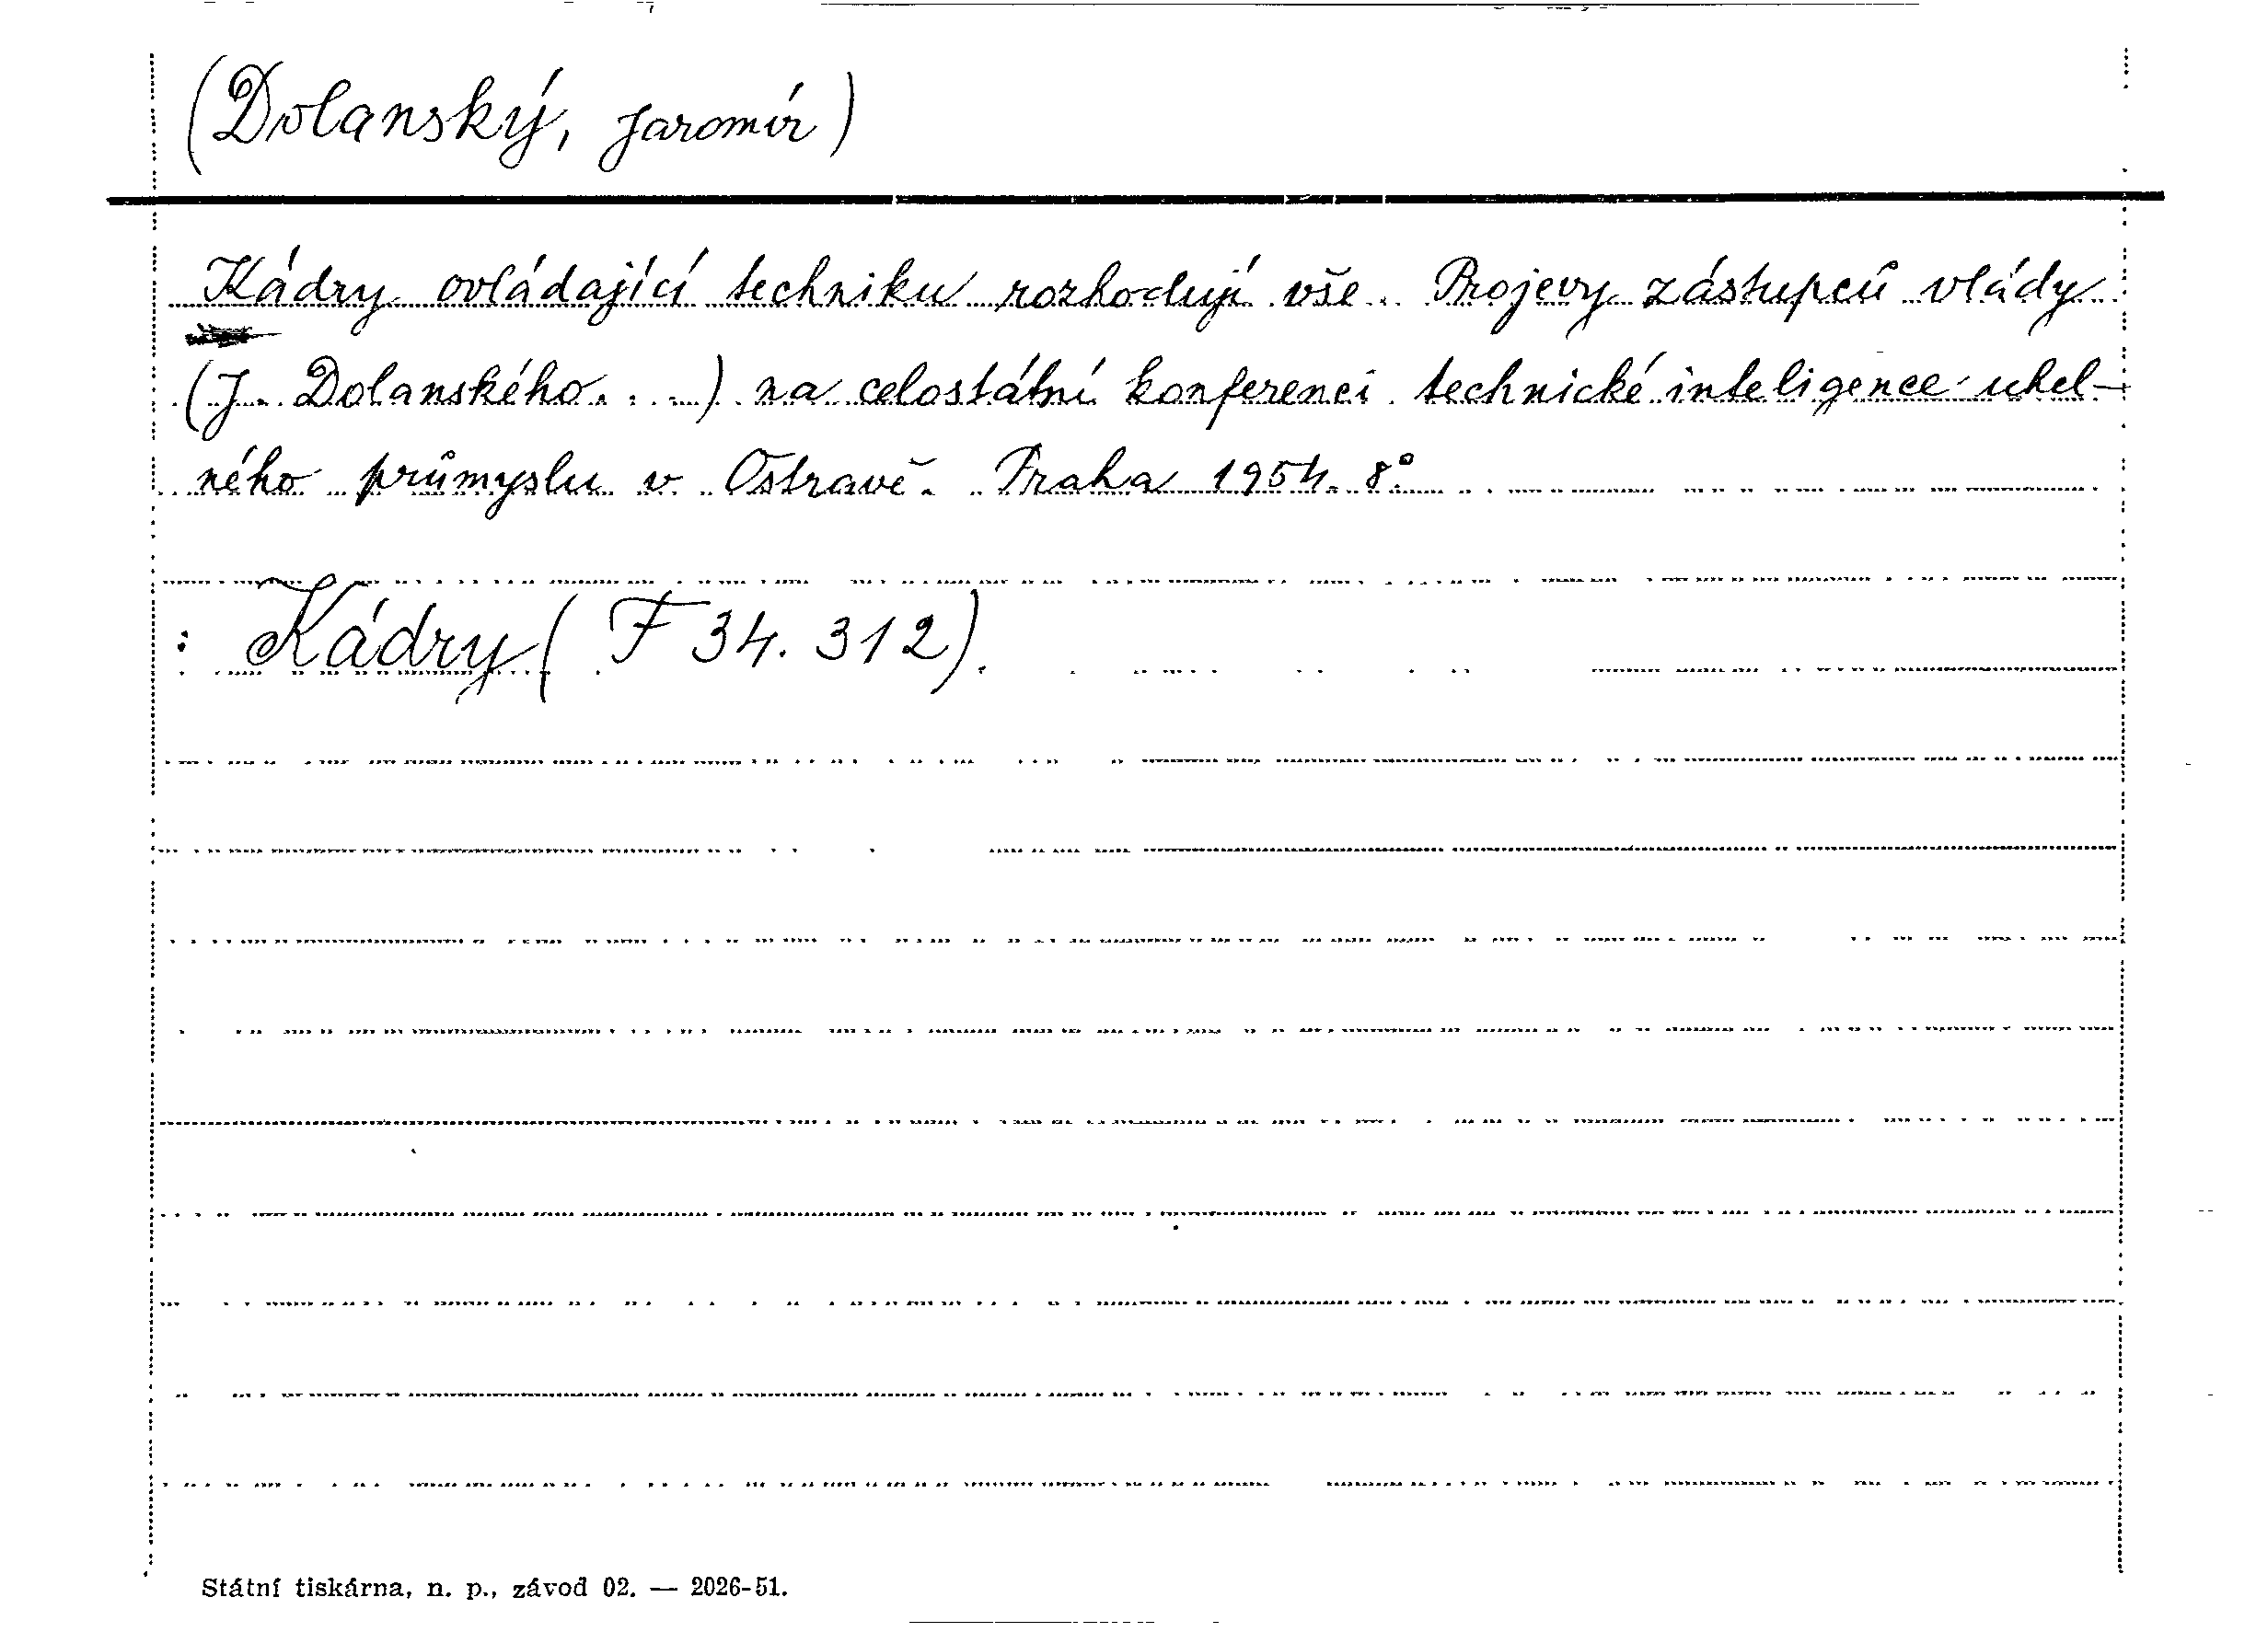 (Dolanský, Jaromír)
Kádry ovládající techniku rozhodují vše. Projevy zástupců vlády
(J. Dolanského...) na celostátní konferenci technické inteligence uhel-
ného průmyslu v Ostravě. Praha 1954. 8°.
: Kádry (F 34.312).
Státní tiskárna, n. p., závod 02. — 2026-51.